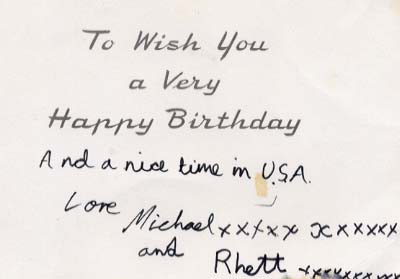 To Wish You
a Very
Happy Birthday
And a nice time in U.S.A.
Love Michael xxxxx xxxxxx
and Rhett xxxxxxx xxx